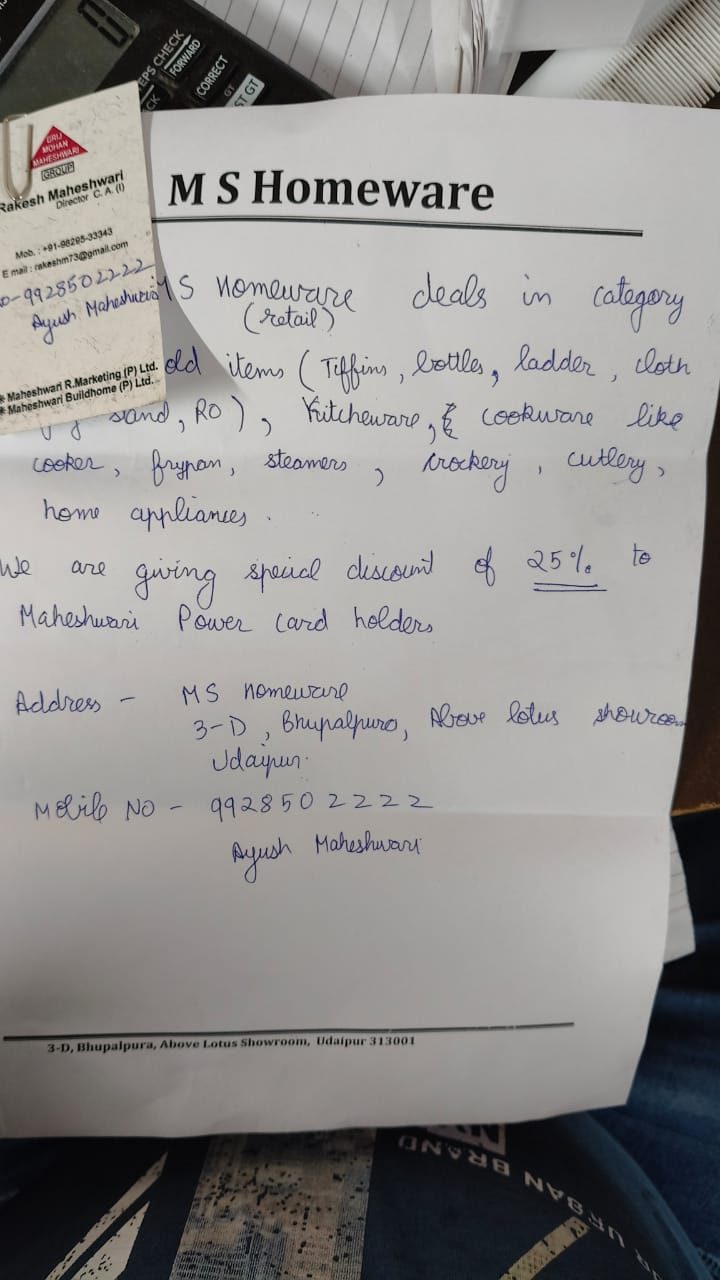 EPS CHECK
FORWARD
CORRECT
CK
GT
ST GT
BRIJ
MOHAN
MAHESHWARI
GROUP
Rakesh Maheshwari
Director C. A. (I)
Mob. : +91-98295-33343
E mail : rakeshm73@gmail.com
9928502222
Ayush Maheshwari
* Maheshwari R.Marketing (P) Ltd.
* Maheshwari Buildhome (P) Ltd.
M S Homeware
MS Homeware deals in category
(retail)
old items ( Tiffins, bottles, ladder, cloth
sand, RO ), Kitcheware, & cookware like
cooker, frypan, steamers, crockery, cutlery,
home appliances.
We are giving special discount of 25% to
Maheshwari Power card holders
Address - MS Homeware
3-D, Bhupalpura, Above lotus showroom
Udaipur.
Mobile No - 9928502222
Ayush Maheshwari
3-D, Bhupalpura, Above Lotus Showroom, Udaipur 313001
URBAN BRAND